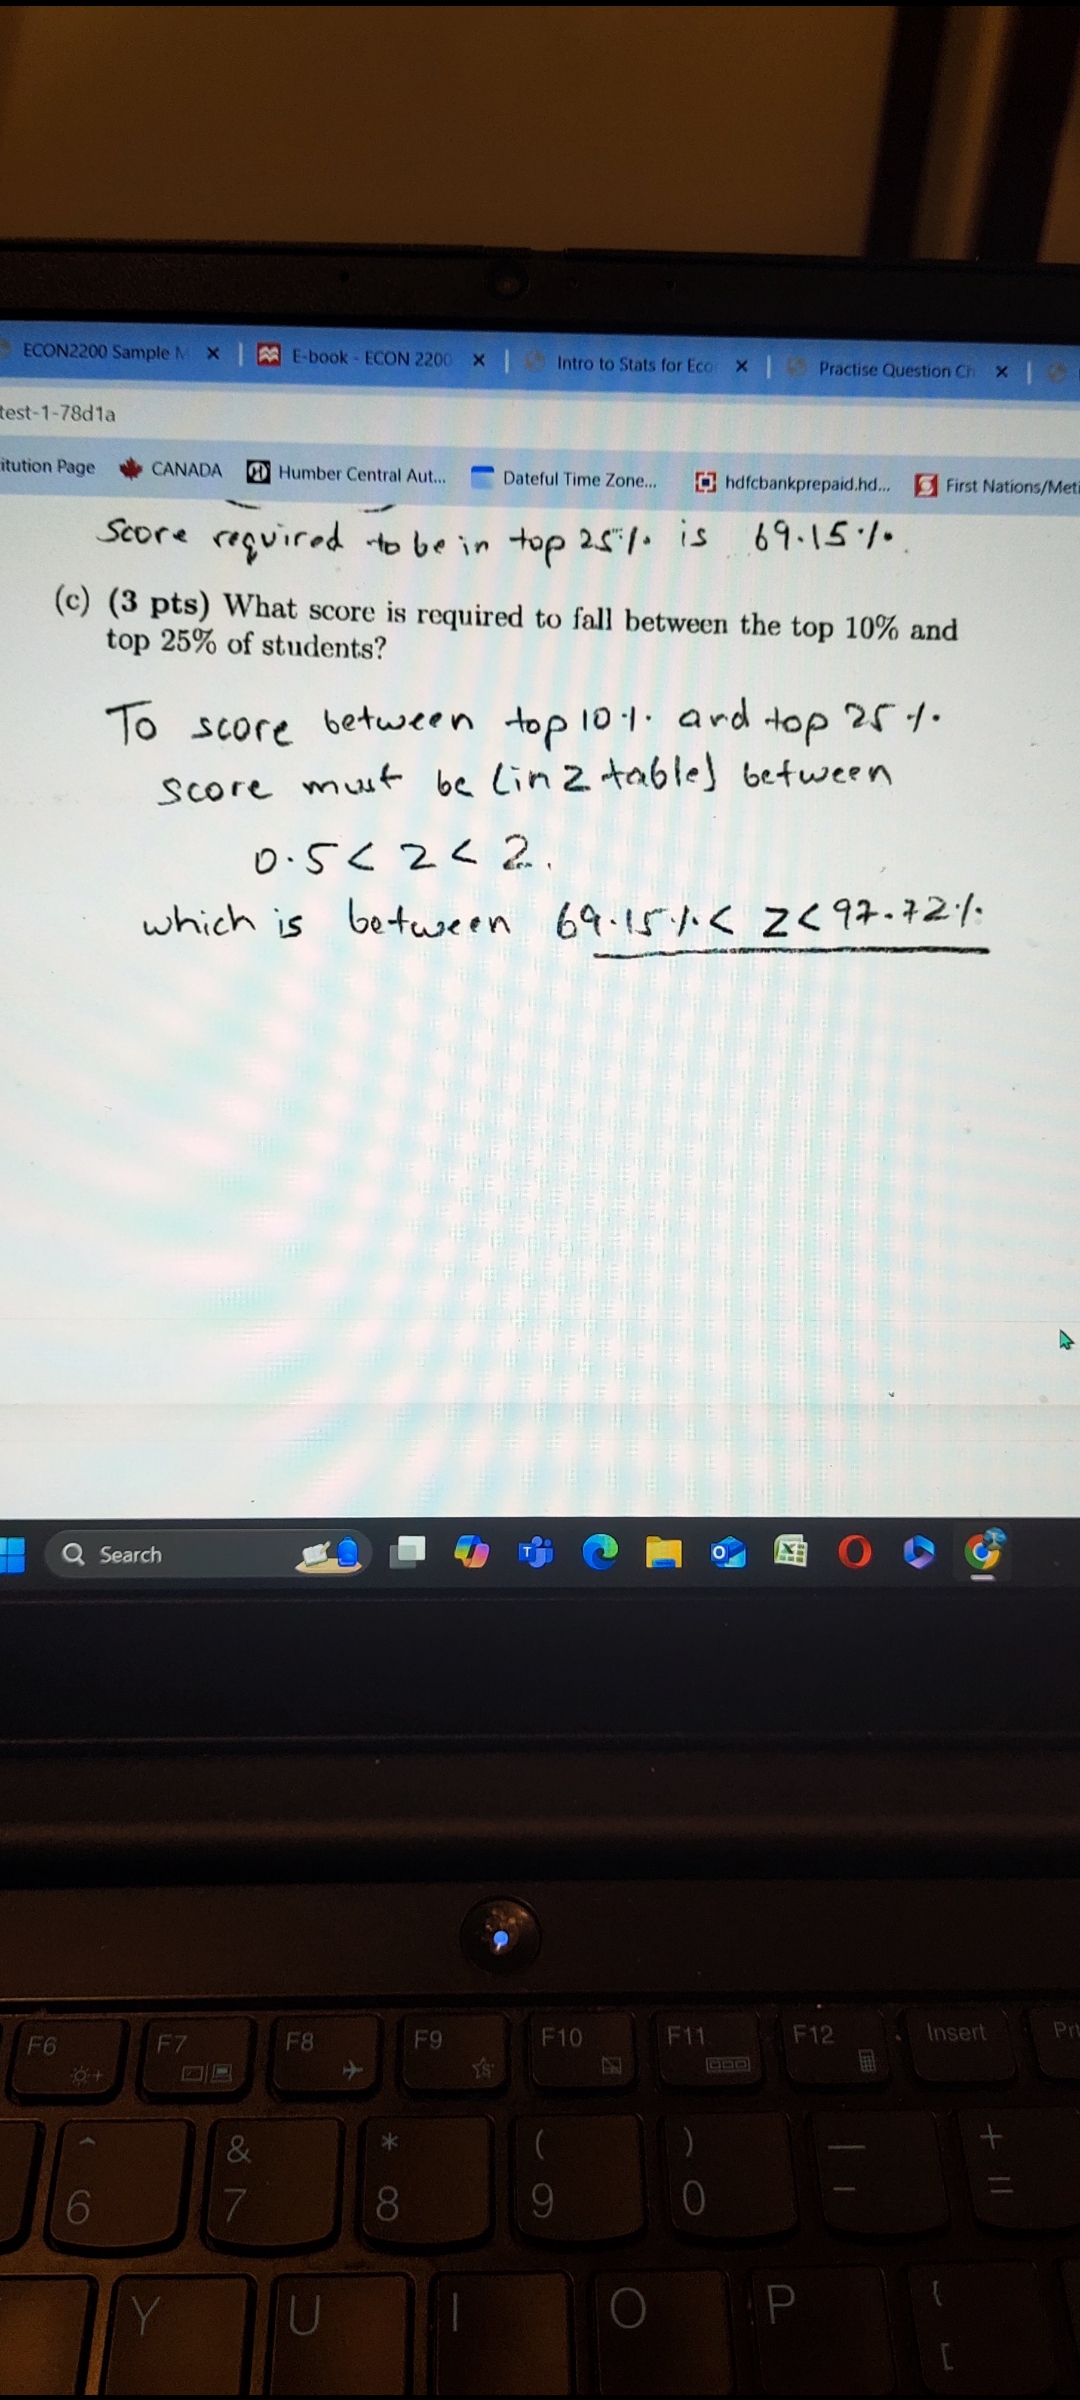 ECON2200 Sample M
E-book - ECON 2200
Intro to Stats for Econ
Practise Question Ch
test-1-78d1a
itution Page
CANADA
Humber Central Aut...
Dateful Time Zone...
hdfcbankprepaid.hd...
First Nations/Meti
Score required to be in top 25% is 69.15%.
(c) (3 pts) What score is required to fall between the top 10% and
top 25% of students?
To score between top 10% and top 25%
score must be (in z table) between
0.5 < z < 2.
which is between 69.15% < z < 97.72%
Search
F6
F7
F8
F9
F10
F11
F12
Insert
Prt
^
6
&
7
*
8
(
9
)
0
—
-
+
=
Y
U
I
O
P
{
[